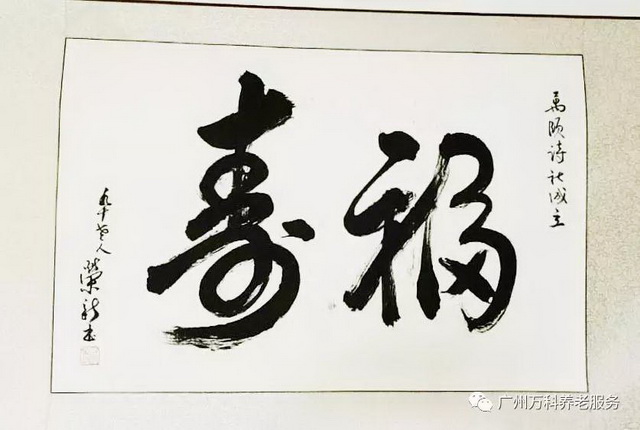 萬颐诗社成立
福寿
九十老人
榮新书
广州万科养老服务